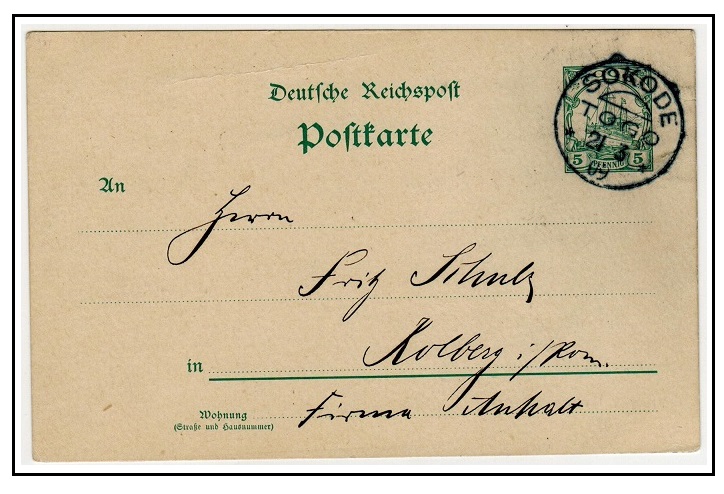 Deutsche Reichspost
Postkarte
SOKODE
TOGO
21 3
09
5 PFENNIG 5
An
Herrn
Fritz Schulz
in Kolberg i/Pom.
Wohnung
(Straße und Hausnummer)
Firma Anhalt